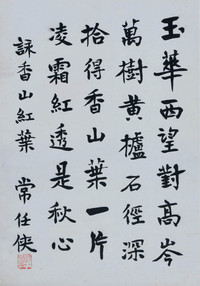 玉華西望對高岑
萬樹黄櫨石徑深
拾得香山葉一片
凌霜紅透是秋心
詠香山紅葉 常任俠